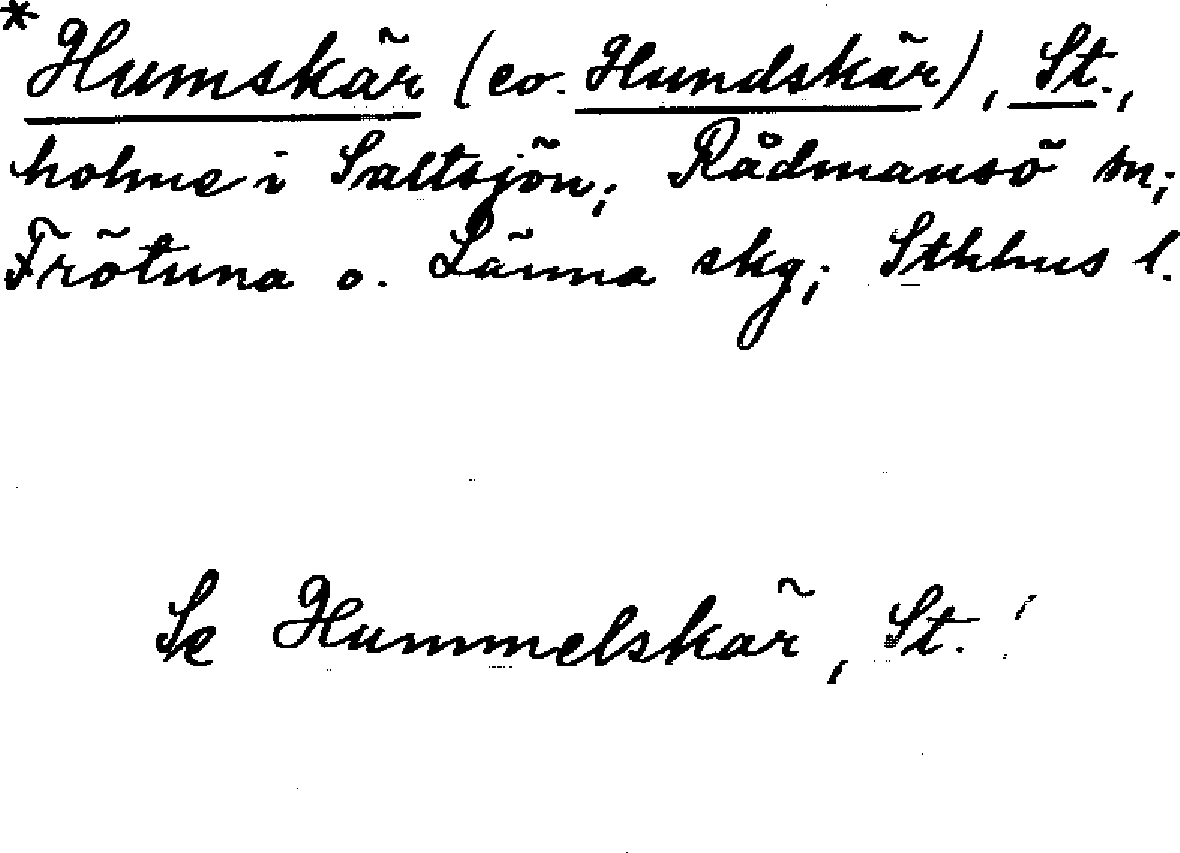 *Humskär (eo. Hundskär), St.,
holme i Saltsjön; Rådmansö sn;
Frötuna o. Länna skg; Sthlms l.
Se Hummelskär, St.!